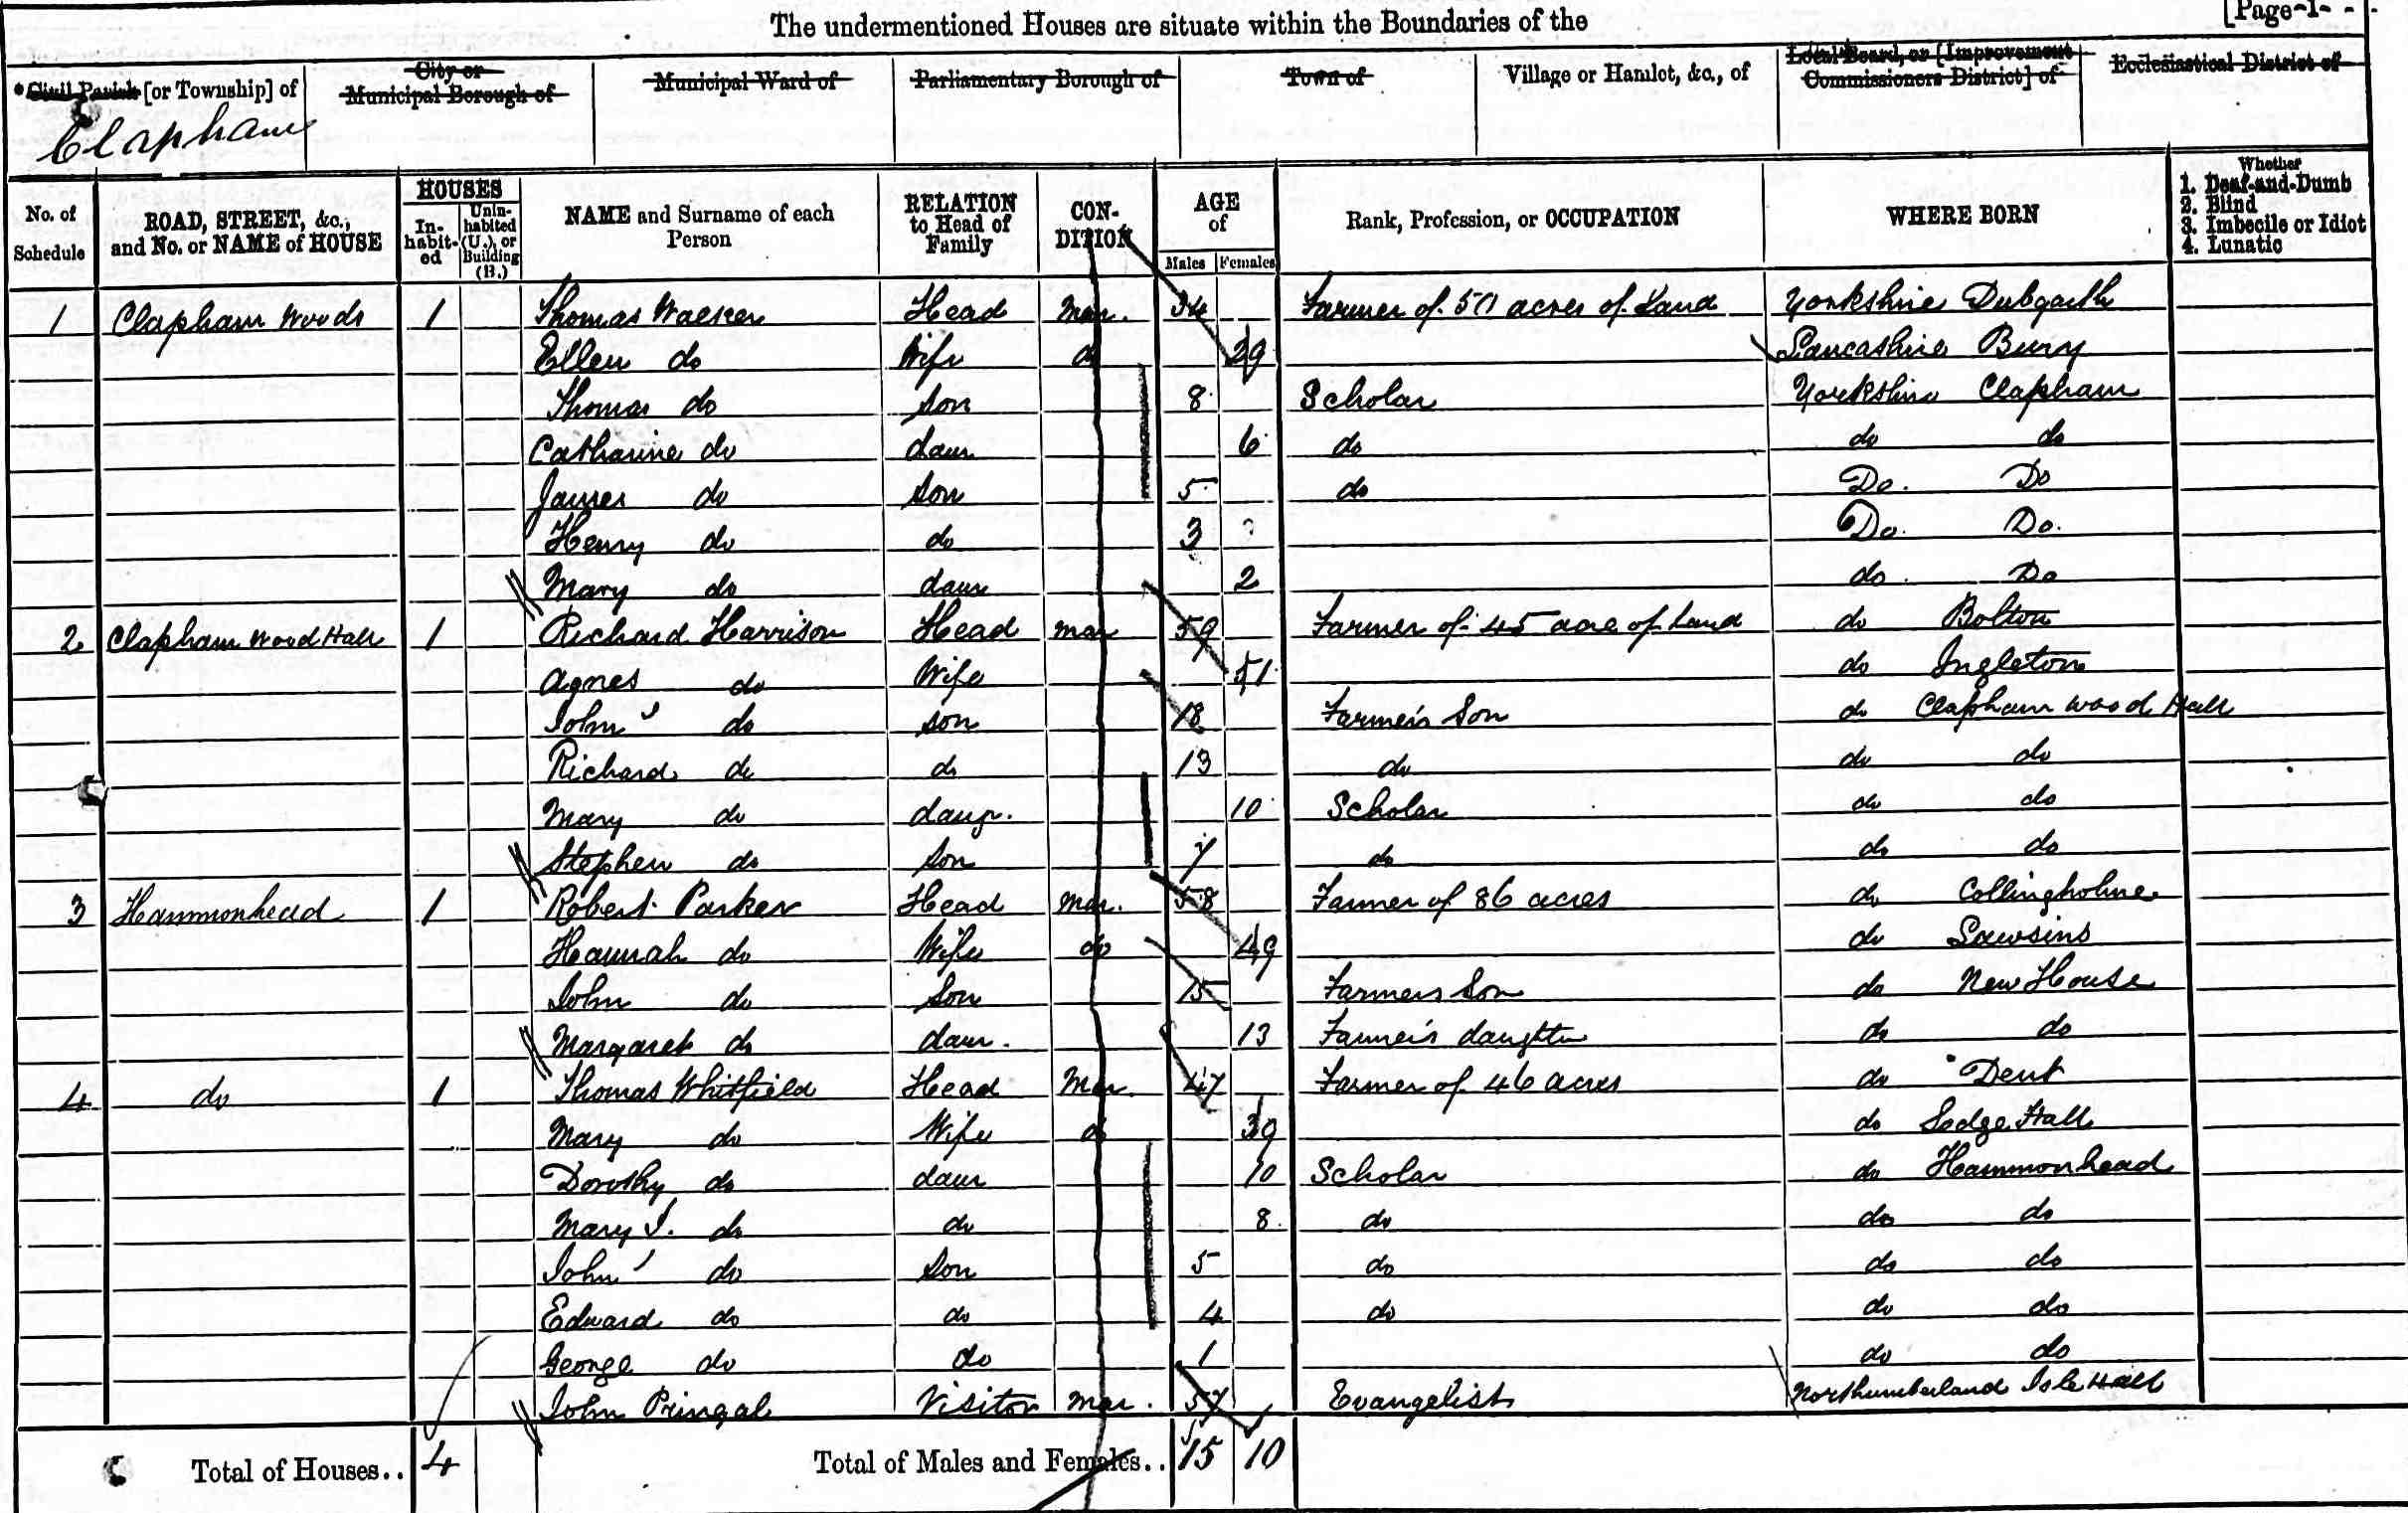 [Page-1-
The undermentioned Houses are situate within the Boundaries of the
*Civil Parish [or Township] of City or Municipal Borough of Municipal Ward of Parliamentary Borough of Town of Village or Hamlet, &c., of Local Board, or [Improvement Commissioners District] of Ecclesiastical District of
Clapham
No. of Schedule ROAD, STREET, &c., and No. or NAME of HOUSE HOUSES In-habit-ed Unin-habited (U.), or Building (B.) NAME and Surname of each Person RELATION to Head of Family CON-DITION AGE of Males Females Rank, Profession, or OCCUPATION WHERE BORN Whether 1. Deaf-and-Dumb 2. Blind 3. Imbecile or Idiot 4. Lunatic
1 Clapham Woods 1 Thomas Head Mar. 34 Farmer of acres of Land Yorkshire
Ellen do Wife do 29 Lancashire Bury
Thomas do Son 8 Scholar Yorkshire Clapham
Catharine do daur 6 do do do
James do Son 5 do Do. Do
Henry do do 3 Do. Do.
Mary do daur 2 do Do
2 Clapham Wood Hall 1 Richard Harrison Head mar 59 Farmer of 45 acre of Land do Bolton
Agnes do Wife 51 do Ingleton
John do son 18 Farmer's Son do Clapham Wood Hall
Richard do do 13 do do do
Mary do daugr. 10 Scholar do do
Stephen do son 7 do do do
3 Hammonhead 1 Robert Parker Head Mar. 58 Farmer of 86 acres do Collingholme
Hannah do Wife do 49 do
John do Son 15 Farmers Son do New House
Margaret do daur. 13 Farmer's daughter do do
4 do 1 Thomas Whitfield Head Mar. 47 Farmer of 46 acres do Dent
Mary do Wife do 39 do Hall
Dorothy do daur 10 Scholar do Hammonhead
Mary do do 8 do do do
John do Son 5 do do do
Edward do do 4 do do do
George do do 1 do do
John Pringal Visitor mar. 57 Evangelist Northumberland
Total of Houses.. 4 Total of Males and Females.. 15 10